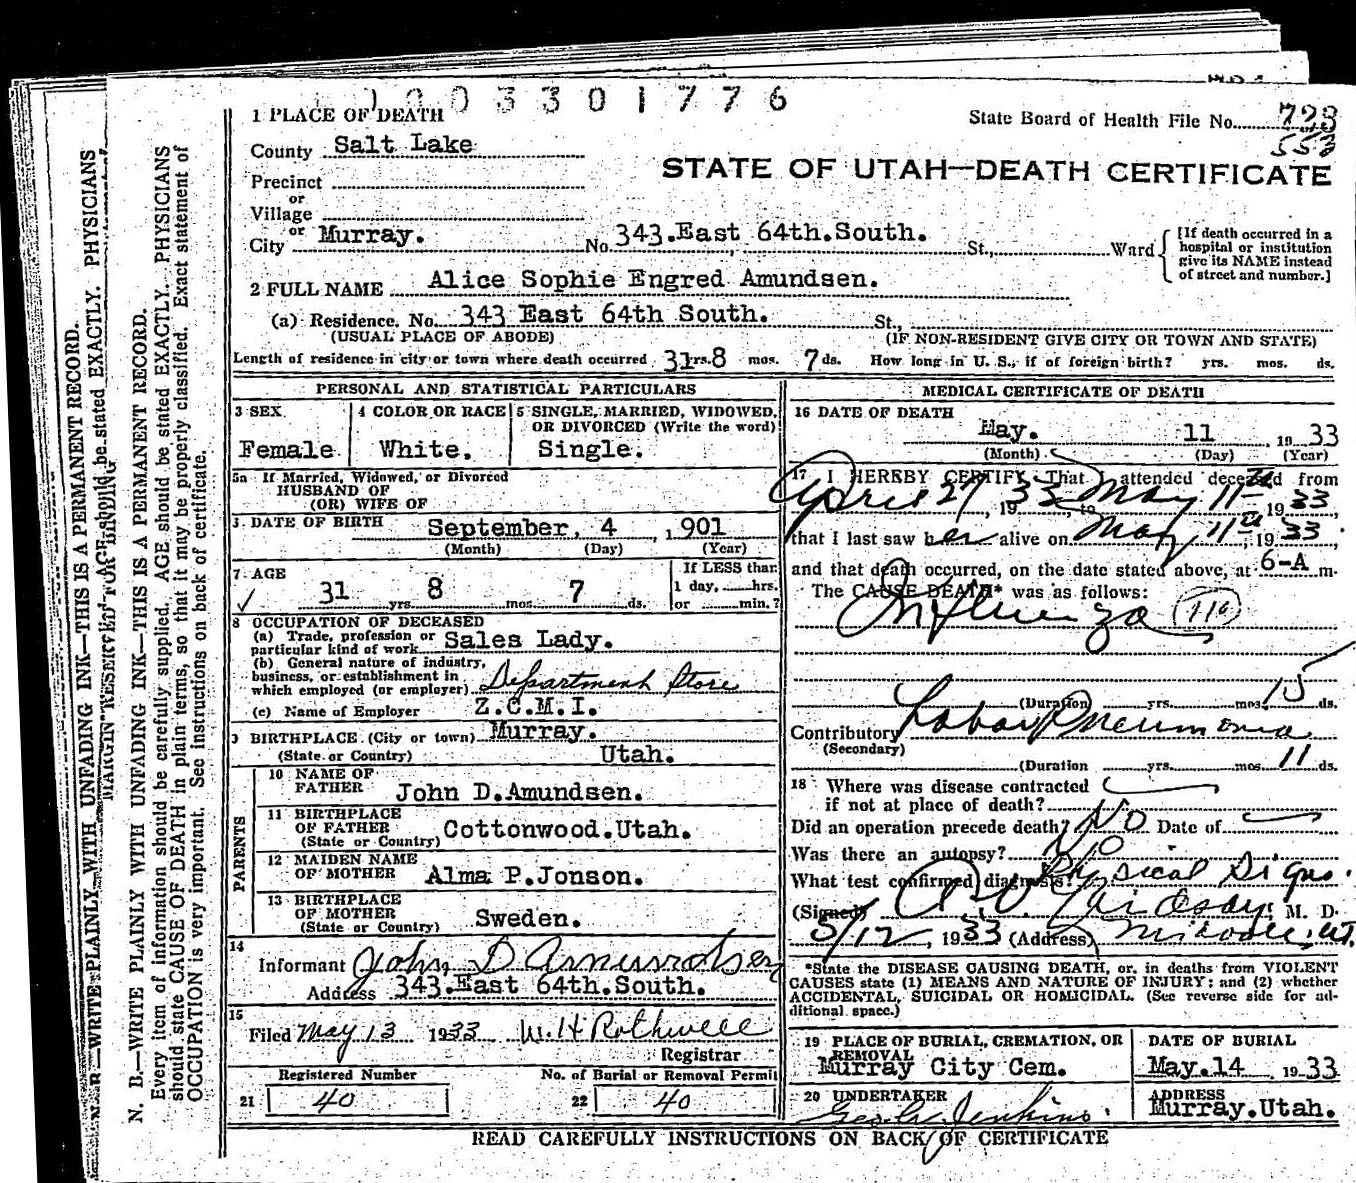 1003301776
1 PLACE OF DEATH
State Board of Health File No. 723
558
County Salt Lake
STATE OF UTAH—DEATH CERTIFICATE
Precinct
or
Village
or
City Murray. No. 343.East 64th.South. St., Ward
[If death occurred in a
hospital or institution
give its NAME instead
of street and number.]
2 FULL NAME Alice Sophie Engred Amundsen.
(a) Residence. No. 343 East 64th South. St.,
(USUAL PLACE OF ABODE) (IF NON-RESIDENT GIVE CITY OR TOWN AND STATE)
Length of residence in city or town where death occurred 31 yrs. 8 mos. 7 ds. How long in U. S., if of foreign birth? yrs. mos. ds.
PERSONAL AND STATISTICAL PARTICULARS
3 SEX 4 COLOR OR RACE 5 SINGLE, MARRIED, WIDOWED,
OR DIVORCED (Write the word)
Female White. Single.
5a If Married, Widowed, or Divorced
HUSBAND OF
(OR) WIFE OF
DATE OF BIRTH September, 4, 1901
(Month) (Day) (Year)
7 AGE If LESS than
1 day, hrs.
31 yrs. 8 mos. 7 ds. or min.?
8 OCCUPATION OF DECEASED
(a) Trade, profession or
particular kind of work Sales Lady.
(b) General nature of industry,
business, or establishment in
which employed (or employer) Department Store
(c) Name of Employer Z.C.M.I.
9 BIRTHPLACE (City or town) Murray.
(State or Country) Utah.
PARENTS
10 NAME OF
FATHER John D.Amundsen.
11 BIRTHPLACE
OF FATHER
(State or Country) Cottonwood.Utah.
12 MAIDEN NAME
OF MOTHER Alma P.Jonson.
13 BIRTHPLACE
OF MOTHER
(State or Country) Sweden.
14
Informant John D Amundsen
Address 343.East 64th.South.
15
Filed May 13 1933 W. H Rothwell
Registrar
Registered Number No. of Burial or Removal Permit
21 40 22 40
MEDICAL CERTIFICATE OF DEATH
16 DATE OF DEATH
May. 11, 1933
(Month) (Day) (Year)
17 I HEREBY CERTIFY That I attended deceased from
April 27, 1933, to May 11th 1933,
that I last saw her alive on May 11th, 1933,
and that death occurred, on the date stated above, at 6-A m.
The CAUSE DEATH* was as follows:
Influenza (11a)
(Duration) yrs. mos. 15 ds.
Contributory Lobar Pneumonia
(Secondary)
(Duration yrs. mos. 11 ds.
18 Where was disease contracted
if not at place of death?
Did an operation precede death? No Date of
Was there an autopsy? No
What test confirmed diagnosis? Physical Signs.
(Signed) Lindsay, M. D.
5/12, 1933 (Address) Midvale, Ut.
*State the DISEASE CAUSING DEATH, or, in deaths from VIOLENT
CAUSES state (1) MEANS AND NATURE OF INJURY; and (2) whether
ACCIDENTAL, SUICIDAL OR HOMICIDAL. (See reverse side for ad-
ditional space.)
19 PLACE OF BURIAL, CREMATION, OR
REMOVAL DATE OF BURIAL
Murray City Cem. May.14, 1933
20 UNDERTAKER ADDRESS
Jenkins. Murray.Utah.
READ CAREFULLY INSTRUCTIONS ON BACK OF CERTIFICATE
MARGIN RESERVED FOR BINDING
N. B.—WRITE PLAINLY WITH UNFADING INK—THIS IS A PERMANENT RECORD.
Every item of information should be carefully supplied. AGE should be stated EXACTLY. PHYSICIANS
should state CAUSE OF DEATH in plain terms, so that it may be properly classified. Exact statement of
OCCUPATION is very important. See instructions on back of certificate.